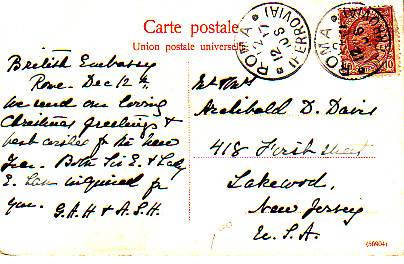 Carte postale
Union postale universelle
ROMA
(FERROVIA)
12 08
ROMA
(FERROVIA)
10
British Embassy
Rome. Dec 12th,
We send our loving
Christmas greetings &
best wishes for the New
Year. Both Sir E. & Lady
E. inquired for
you. G.A.H & A.S.H.
Mr & Mrs
Archibald D. Davis
418 street
Lakewood,
New Jersey
U.S.A.
(56904)